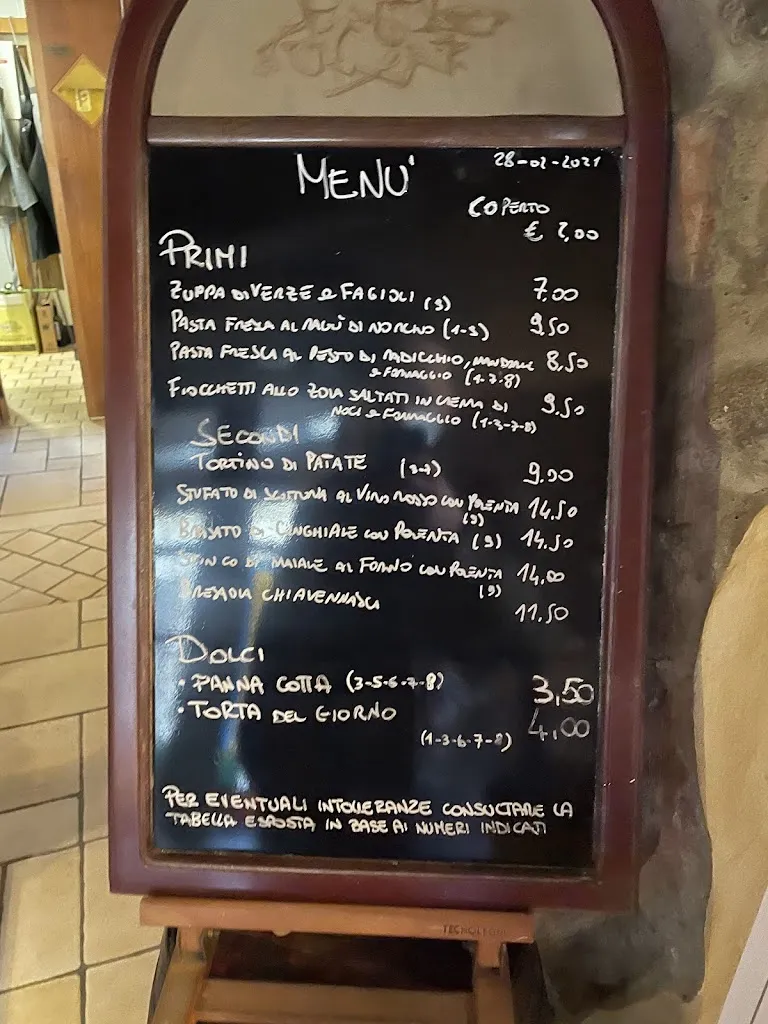 MENU'
28-02-2021
COPERTO
€ 2,00
PRIMI
ZUPPA DI VERZE e FAGIOLI (9) 7.00
PASTA FRESCA AL RAGÙ DI NORCINO (1-9) 9,50
PASTA FRESCA AL PESTO DI RADICCHIO, MANDORLE 8,50
e FORMAGGIO (1-7-8)
FIOCCHETTI ALLO ZOLA SALTATI IN CREMA DI 9,50
NOCI e FORMAGGIO (1-3-7-8)
SECONDI
TORTINO DI PATATE (3-7) 9.00
STUFATO DI SCOTTONA AL VINO ROSSO CON POLENTA 14,50
(9)
BRASATO DI CINGHIALE CON POLENTA (9) 14,50
STINCO DI MAIALE AL FORNO CON POLENTA 14,00
(9)
BRESAOLA CHIAVENNASCA
11,50
DOLCI
• PANNA COTTA (3-5-6-7-8) 3,50
• TORTA DEL GIORNO 4,00
(1-3-6-7-8)
PER EVENTUALI INTOLLERANZE CONSULTARE LA
TABELLA ESPOSTA, IN BASE AI NUMERI INDICATI